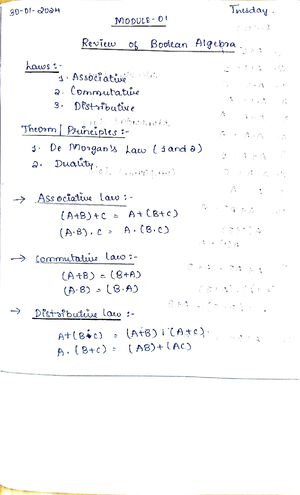 30-01-2024 Tuesday.
MODULE-01
Review of Boolean Algebra
Laws :-
1. Associative
2. Commutative
3. Distributive
Theorm / Principles :-
1. De Morgan's Law (1 and 2)
2. Duality.
→ Associative law :-
(A+B)+C = A+(B+C)
(A·B)·C = A·(B·C)
→ Commutative law :-
(A+B) = (B+A)
(A·B) = (B·A)
→ Distributive law :-
A+(B·C) = (A+B)·(A+C)
A·(B+C) = (AB)+(AC)